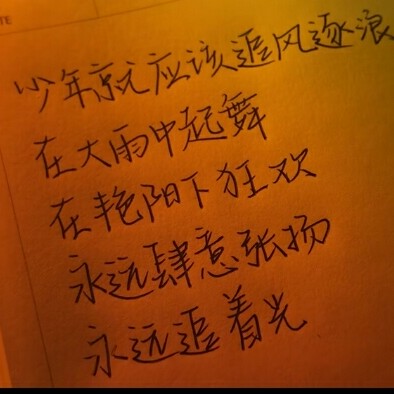 少年就应该追风逐浪
在大雨中起舞
在艳阳下狂欢
永远肆意张扬
永远追着光